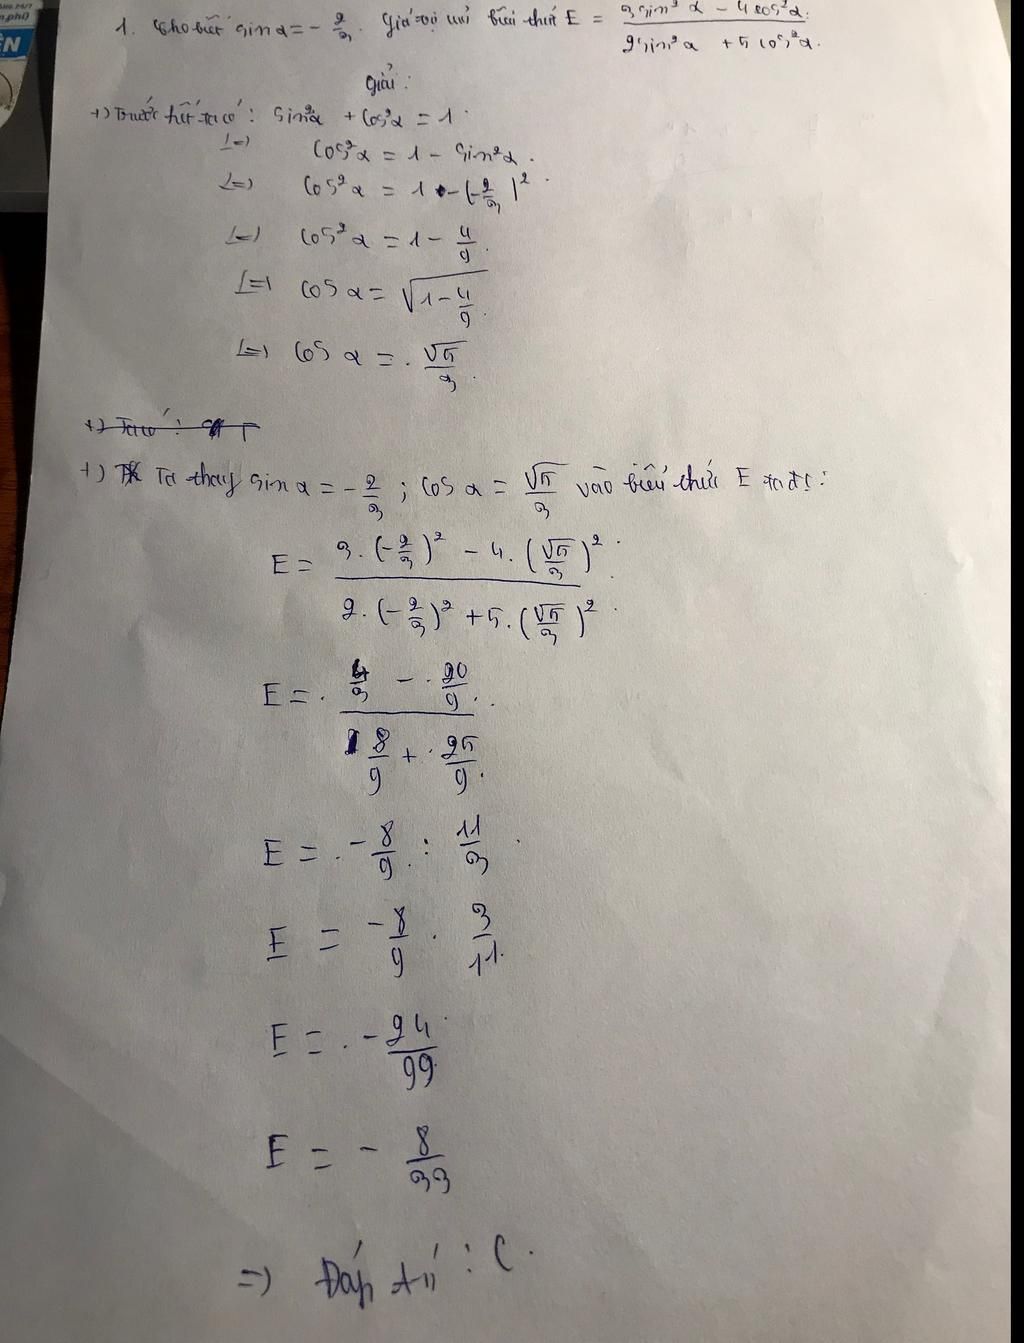 24/7
phí)
ỆN
1. Cho biết sin α = - 2/3. Giá trị của biểu thức E = (3 sin² α - 4 cos² α)/(2 sin² α + 5 cos² α).
Giải:
+) Trước hết ta có: sin²α + cos²α = 1.
<=> cos²α = 1 - sin²α.
<=> cos²α = 1 - (-2/3)².
<=> cos²α = 1 - 4/9.
<=> cos α = √(1 - 4/9).
<=> cos α = √5/3.
+) Ta có:
+) Ta thay sin α = -2/3; cos α = √5/3 vào biểu thức E ta đc:
E = (3.(-2/3)² - 4.(√5/3)²)/(2.(-2/3)² + 5.(√5/3)²)
E = (4/3 - 20/9)/(8/9 + 25/9)
E = -8/9 : 11/3.
E = -8/9 . 3/11.
E = -24/99
E = - 8/33
=> Đáp án : C.